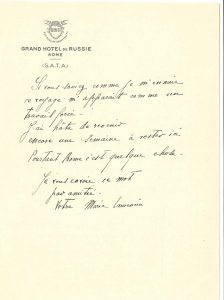 GRAND HOTEL DE RUSSIE
ROME
(S.A.T.A.)
Si vous saviez comme je m'ennuie
ce voyage m'apparait comme un
travail forcé.
J'ai hâte de revenir
encore une semaine à rester ici
Pourtant Rome c'est quelque chose.
Je vous envoie ce mot
par amitié.
Votre Marie Laurencin